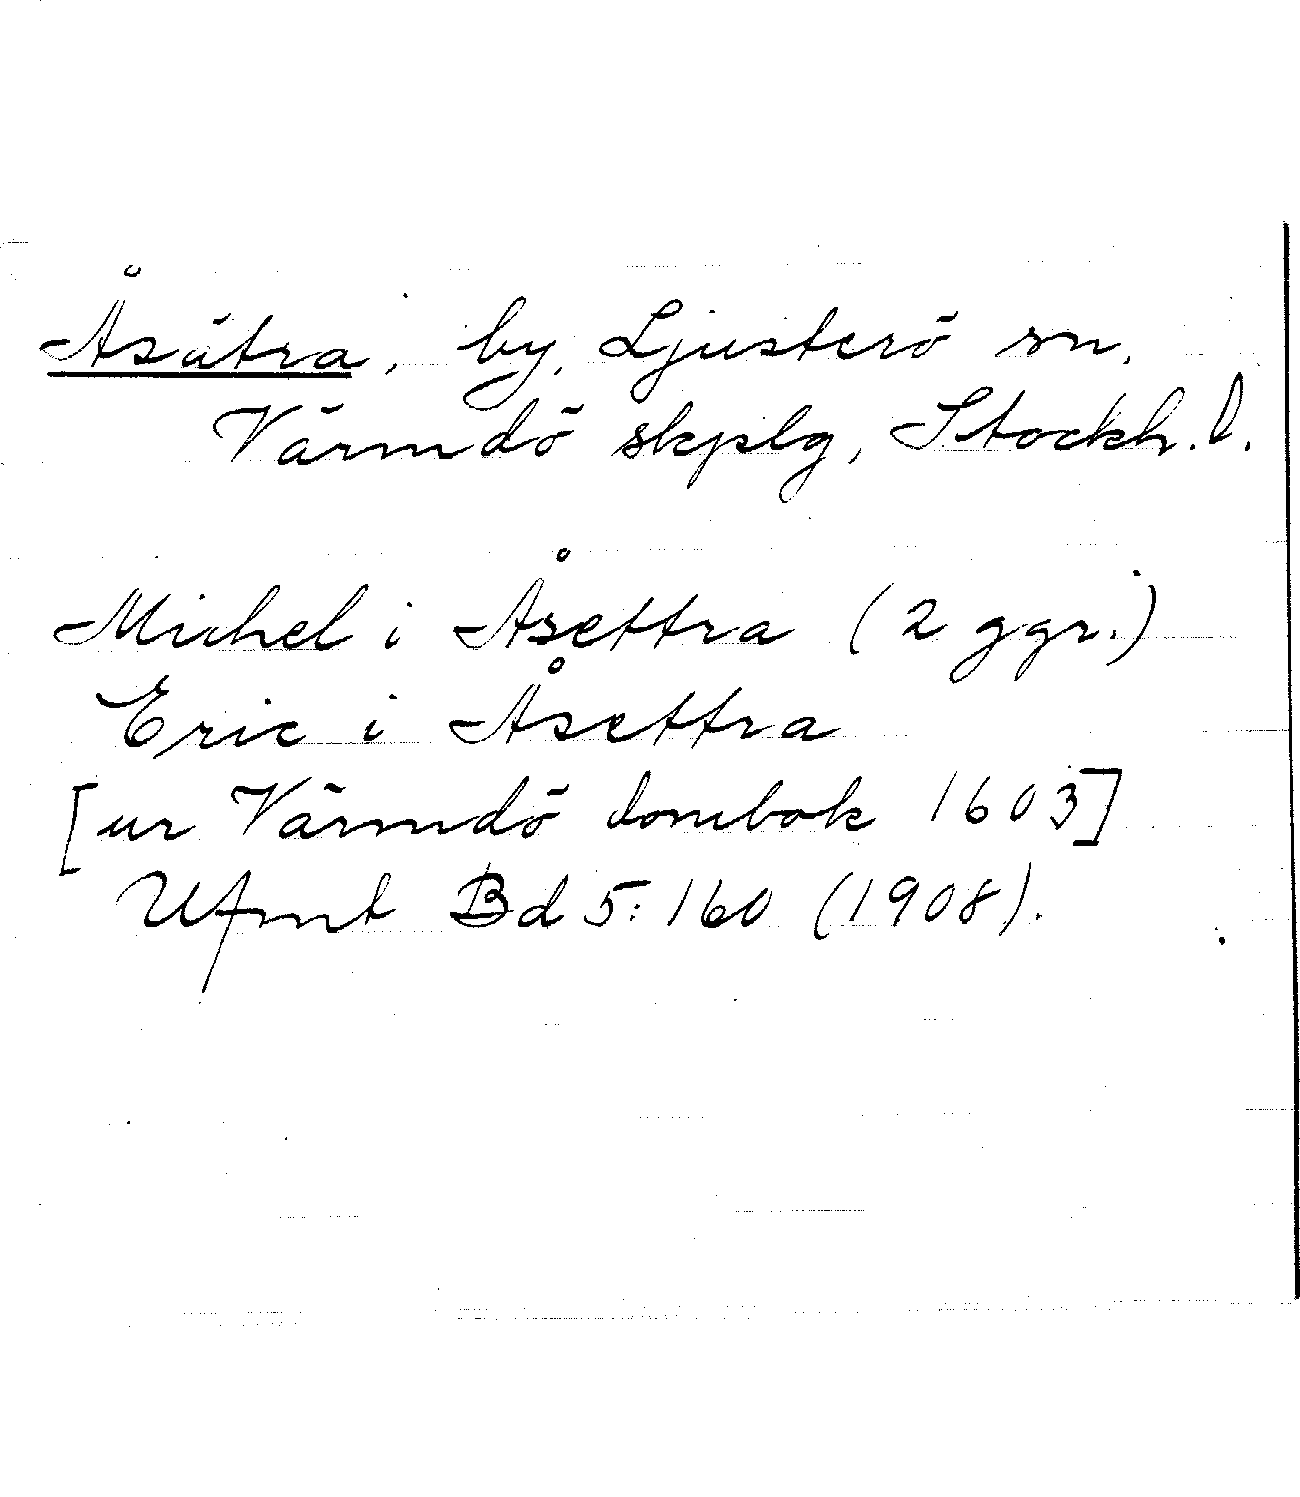 Åsätra, by, Ljusterö sn,
Värmdö skplg, Stockh. l.
Michel i Åsettra (2 ggr.)
Eric i Åsettra
[ur Värmdö dombok 1603]
Ufmt Bd 5:160 (1908).